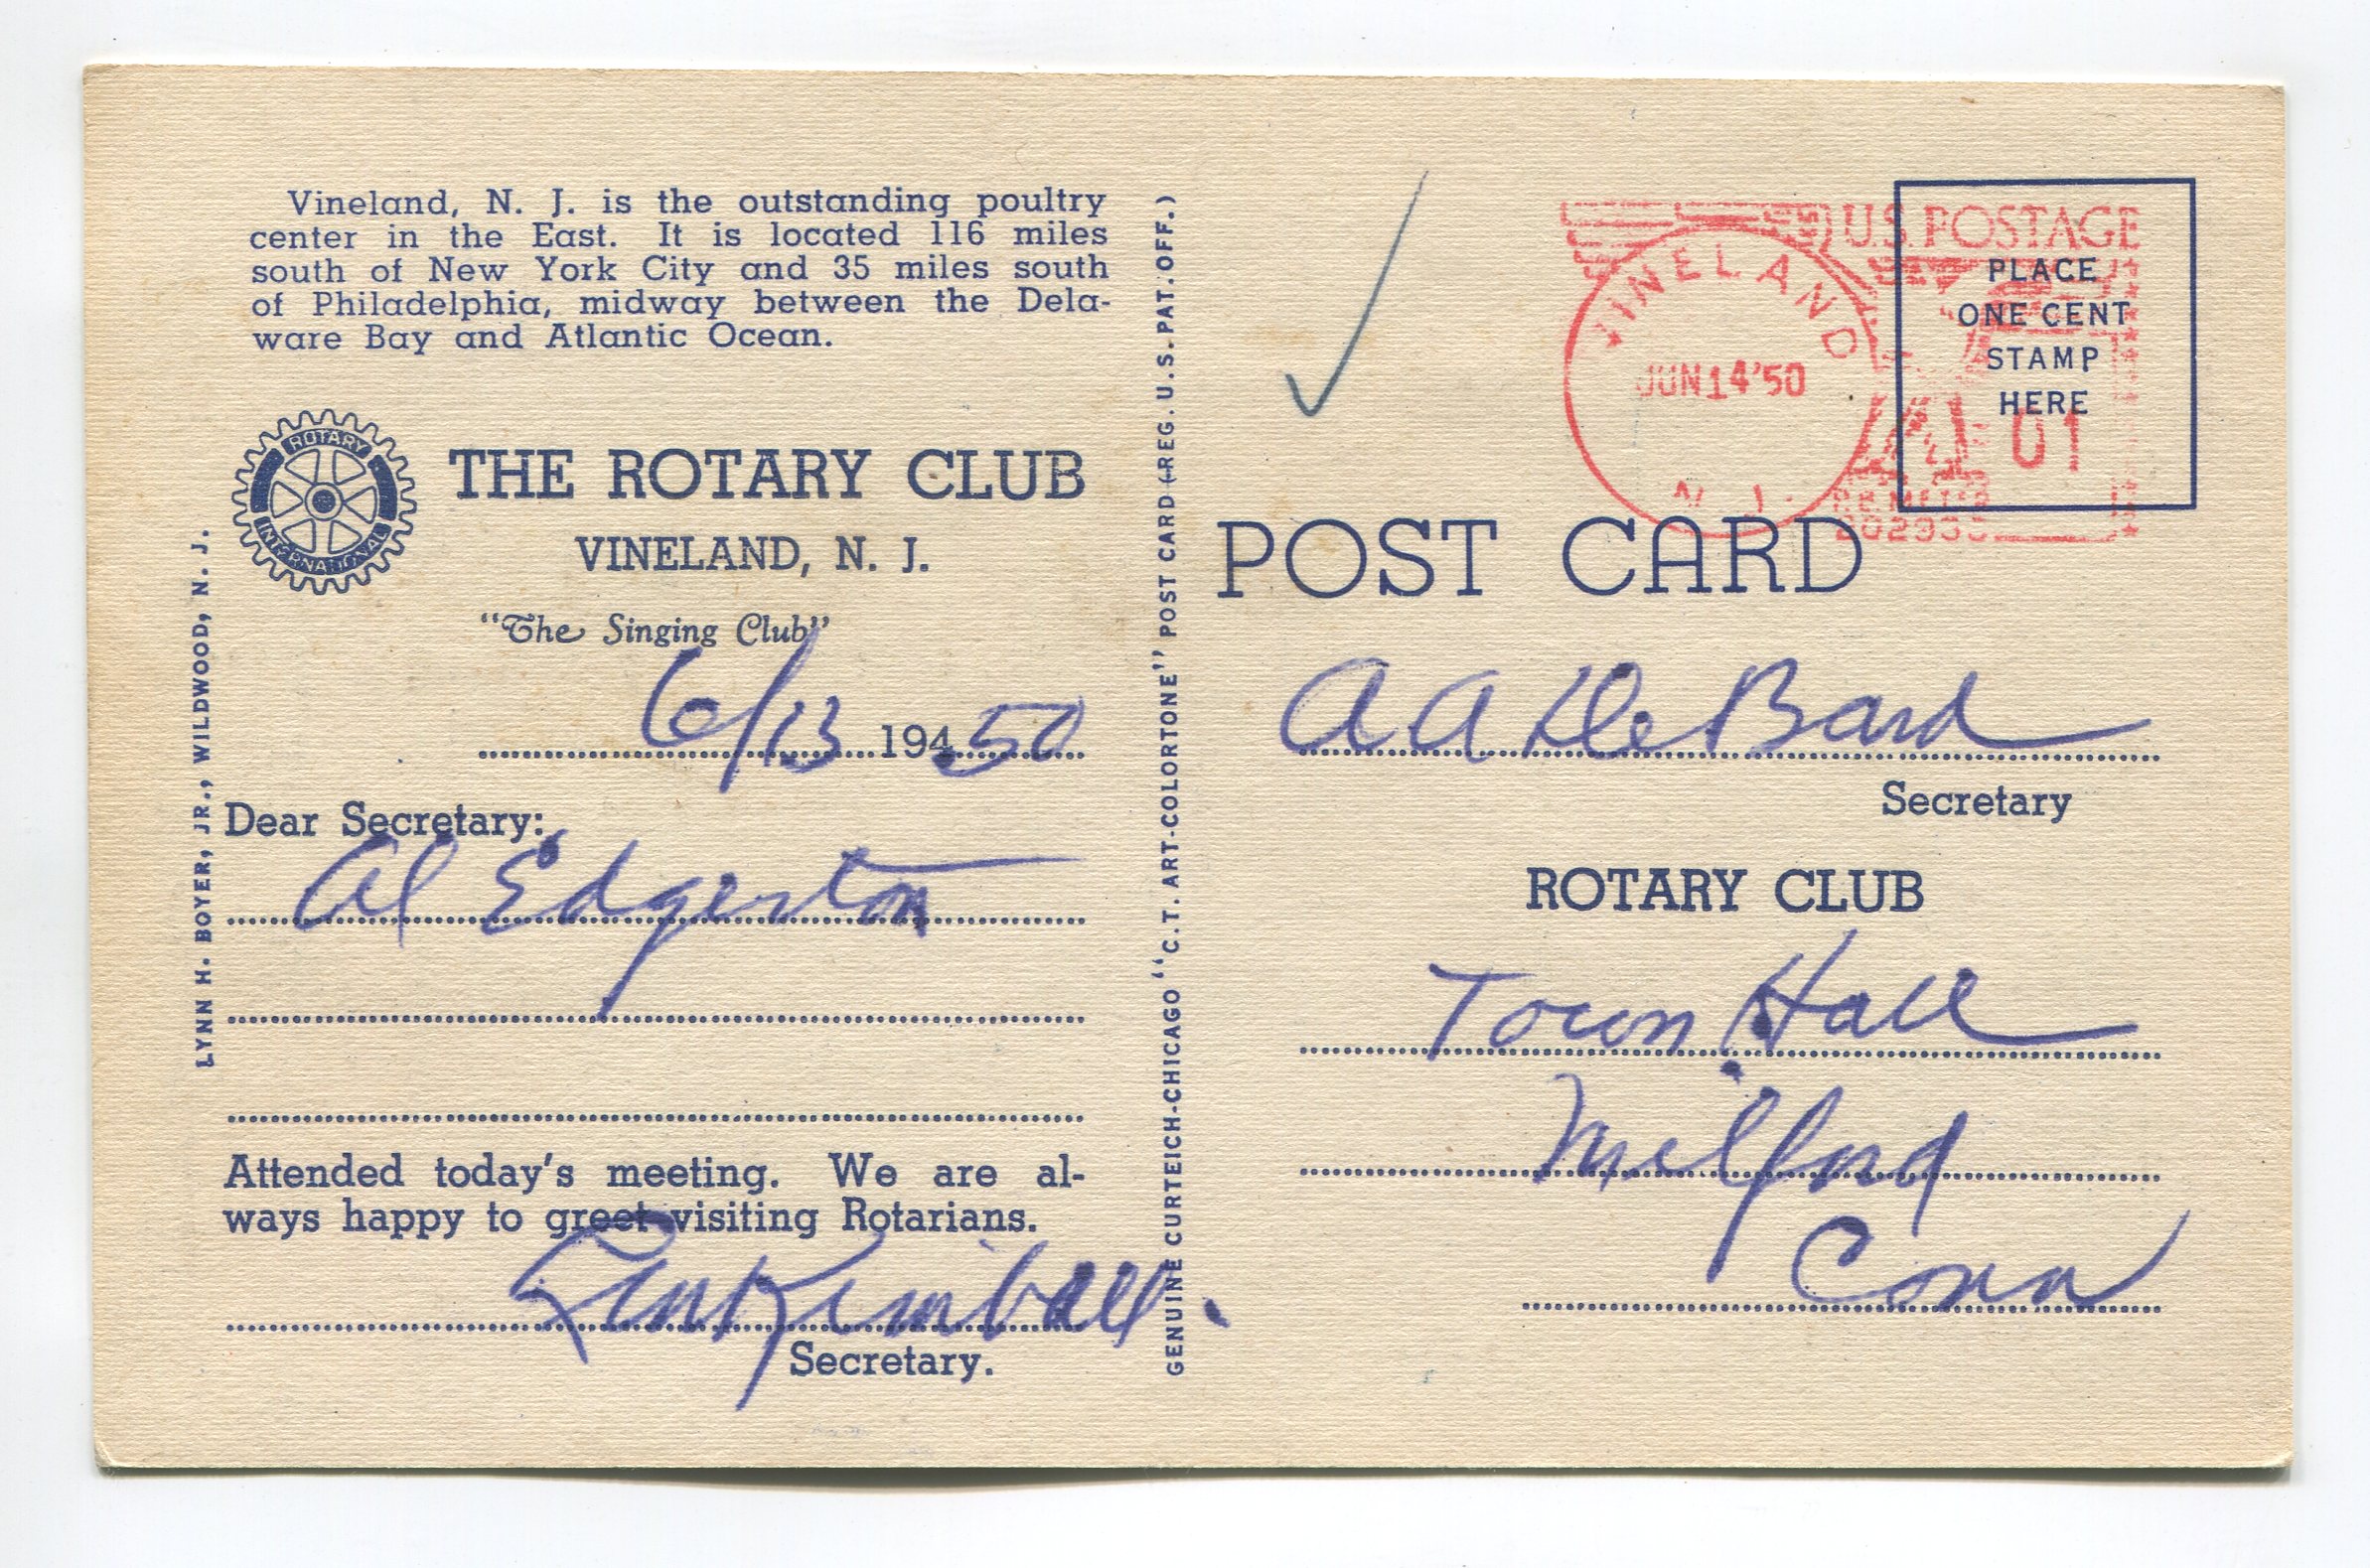 Vineland, N. J. is the outstanding poultry
center in the East. It is located 116 miles
south of New York City and 35 miles south
of Philadelphia, midway between the Dela-
ware Bay and Atlantic Ocean.
ROTARY
INTERNATIONAL
THE ROTARY CLUB
VINELAND, N. J.
"The Singing Club"
6/13 194 50
Dear Secretary:
Al Edgerton
Attended today's meeting. We are al-
ways happy to greet visiting Rotarians.
Len Kimball.
Secretary.
LYNN H. BOYER, JR., WILDWOOD, N. J.
GENUINE CURTEICH-CHICAGO "C. T. ART-COLORTONE" POST CARD (REG. U. S. PAT. OFF.)
VINELAND
JUN 14 '50
N. J.
U.S. POSTAGE
01
PLACE
ONE CENT
STAMP
HERE
POST CARD
A A De Bard
Secretary
ROTARY CLUB
Town Hall
Milford
Conn